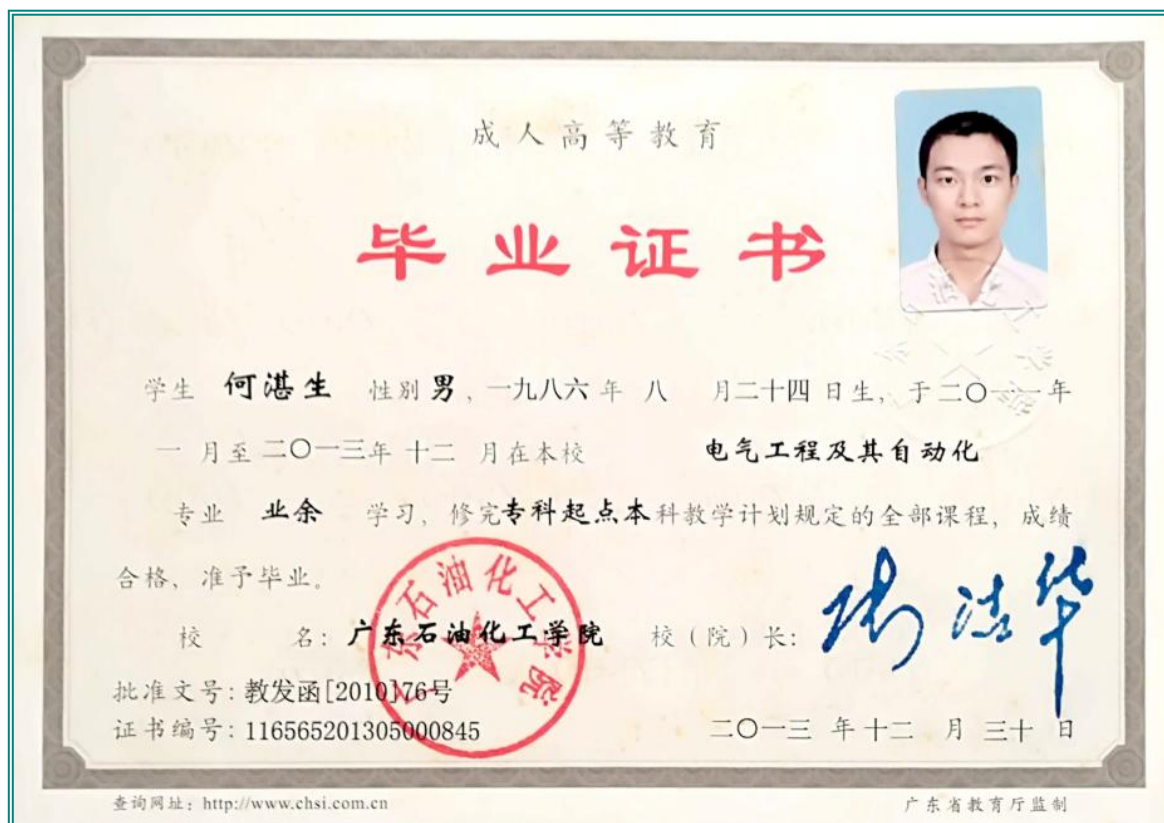 成人高等教育
毕业证书
学生 何湛生 性别 男 、一九八六 年 八 月二十四 日生, 于二〇一一年
一 月至 二〇一三年 十二 月在本校 电气工程及其自动化
专业 业余 学习, 修完专科起点本科教学计划规定的全部课程, 成绩
合格、准予毕业。
校 名: 广东石油化工学院 校(院)长:
广东石油化工学院
批准文号: 教发函[2010]76号
证书编号: 116565201305000845
二〇一三 年 十二 月 三十 日
查询网址: http://www.chsi.com.cn
广东省教育厅监制